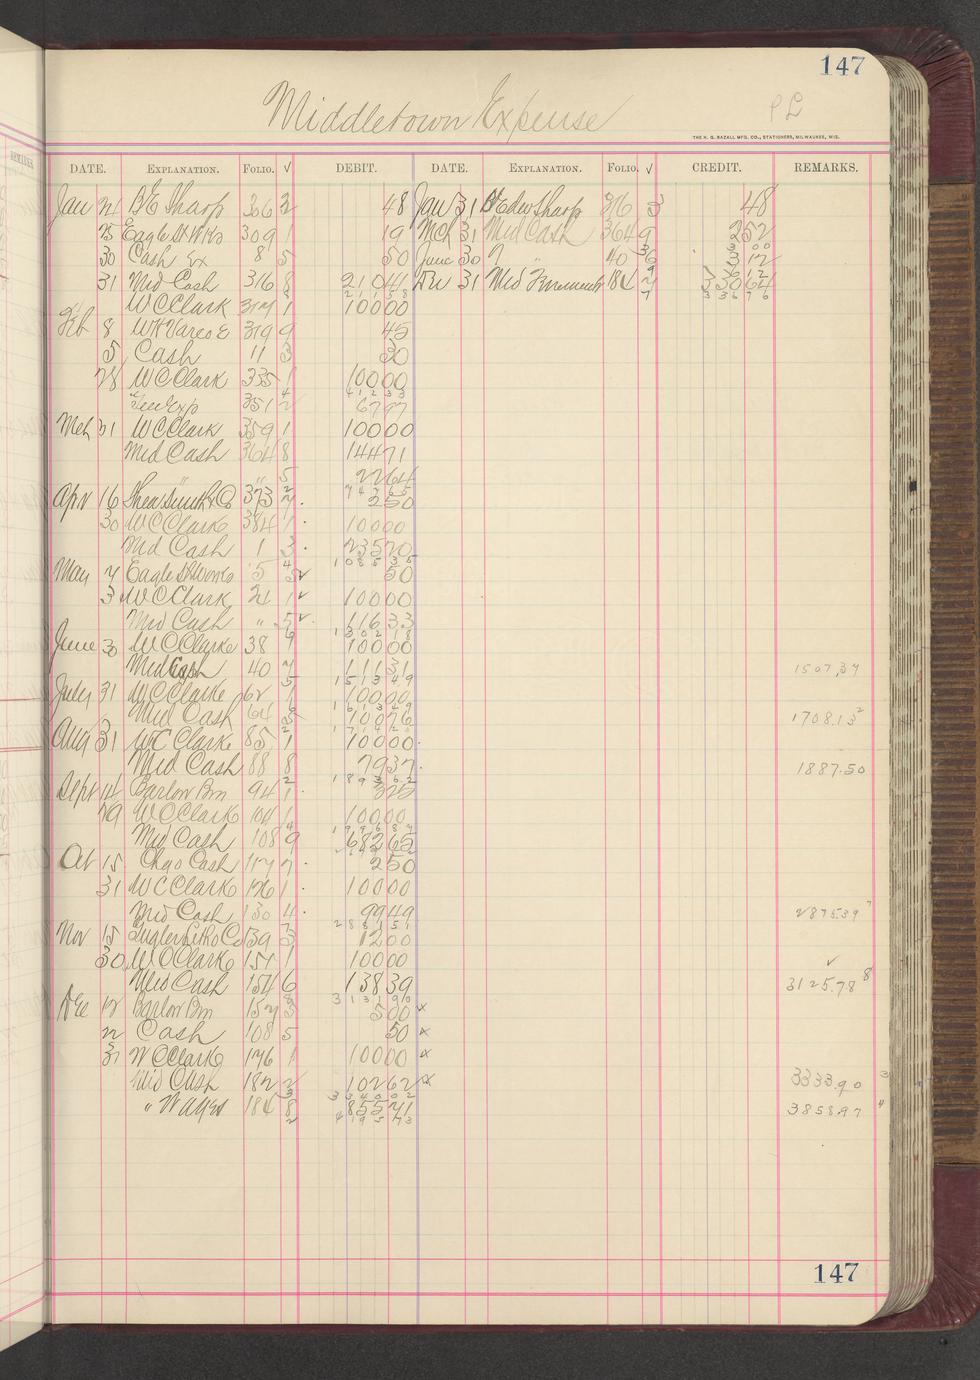 147
Middletown Expense
P L
THE H. G. RAZALL MFG. CO., STATIONERS, MILWAUKEE, WIS.
DATE. EXPLANATION. FOLIO. √ DEBIT. DATE. EXPLANATION. FOLIO. √ CREDIT. REMARKS.
Jan 21 B E Sharp 306 2 48 Jan 31 B Edw Sharp 316 3 48
25 Eagle St Wks 309 1 19 Mch 31 Mid Cash 364 9 252
30 Cash Ex 8 5 50 June 30 " 40 6 312
31 Mid Cash 316 8 21041 Dec 31 Mid 184 33064
W C Clark 317 1 10000
Feb 8 319 9 45
5 Cash 11 3 30
28 W C Clark 335 1 10000
Gen Exp 351 2 6797
Mch 31 W C Clark 359 1 10000
Mid Cash 364 8 14471
" " 5 2264
Apr 16 Shea Smith & Co 373 7 250
30 W C Clark 384 1 10000
Mid Cash 1 3 23520
May 7 Eagle St Works 5 50
31 W C Clark 21 1 √ 10000
Mid Cash " 5 √ 11633
June 30 W C Clarke 38 9 10000
Mid Cash 40 7 11131 1507.37
July 31 W C Clarke 62 1 10000
Mid Cash 64 5 10076 1708.13
Aug 31 W C Clarke 85 1 10000
Mid Cash 88 8 7937 1887.50
Sept 14 Barlow Bm 94 1 325
29 W C Clark 104 1 10000
Mid Cash 108 9 68265
Oct 15 Chgo Cash 117 7 250
31 W C Clark 126 1 10000
Mid Cash 130 4 9949 2875.39
Nov 15 Gugler Litho Co 139 3 1200
30 W C Clark 151 1 10000 √
Mid Cash 154 6 13839 3125.78
Dec 12 Barlow Bm 157 3 500 x
22 Cash 108 5 50 x
31 W C Clark 176 1 10000 x
Mid Cash 182 2 10262 x 3333.90
" Wages 184 8 85571 3858.97
147